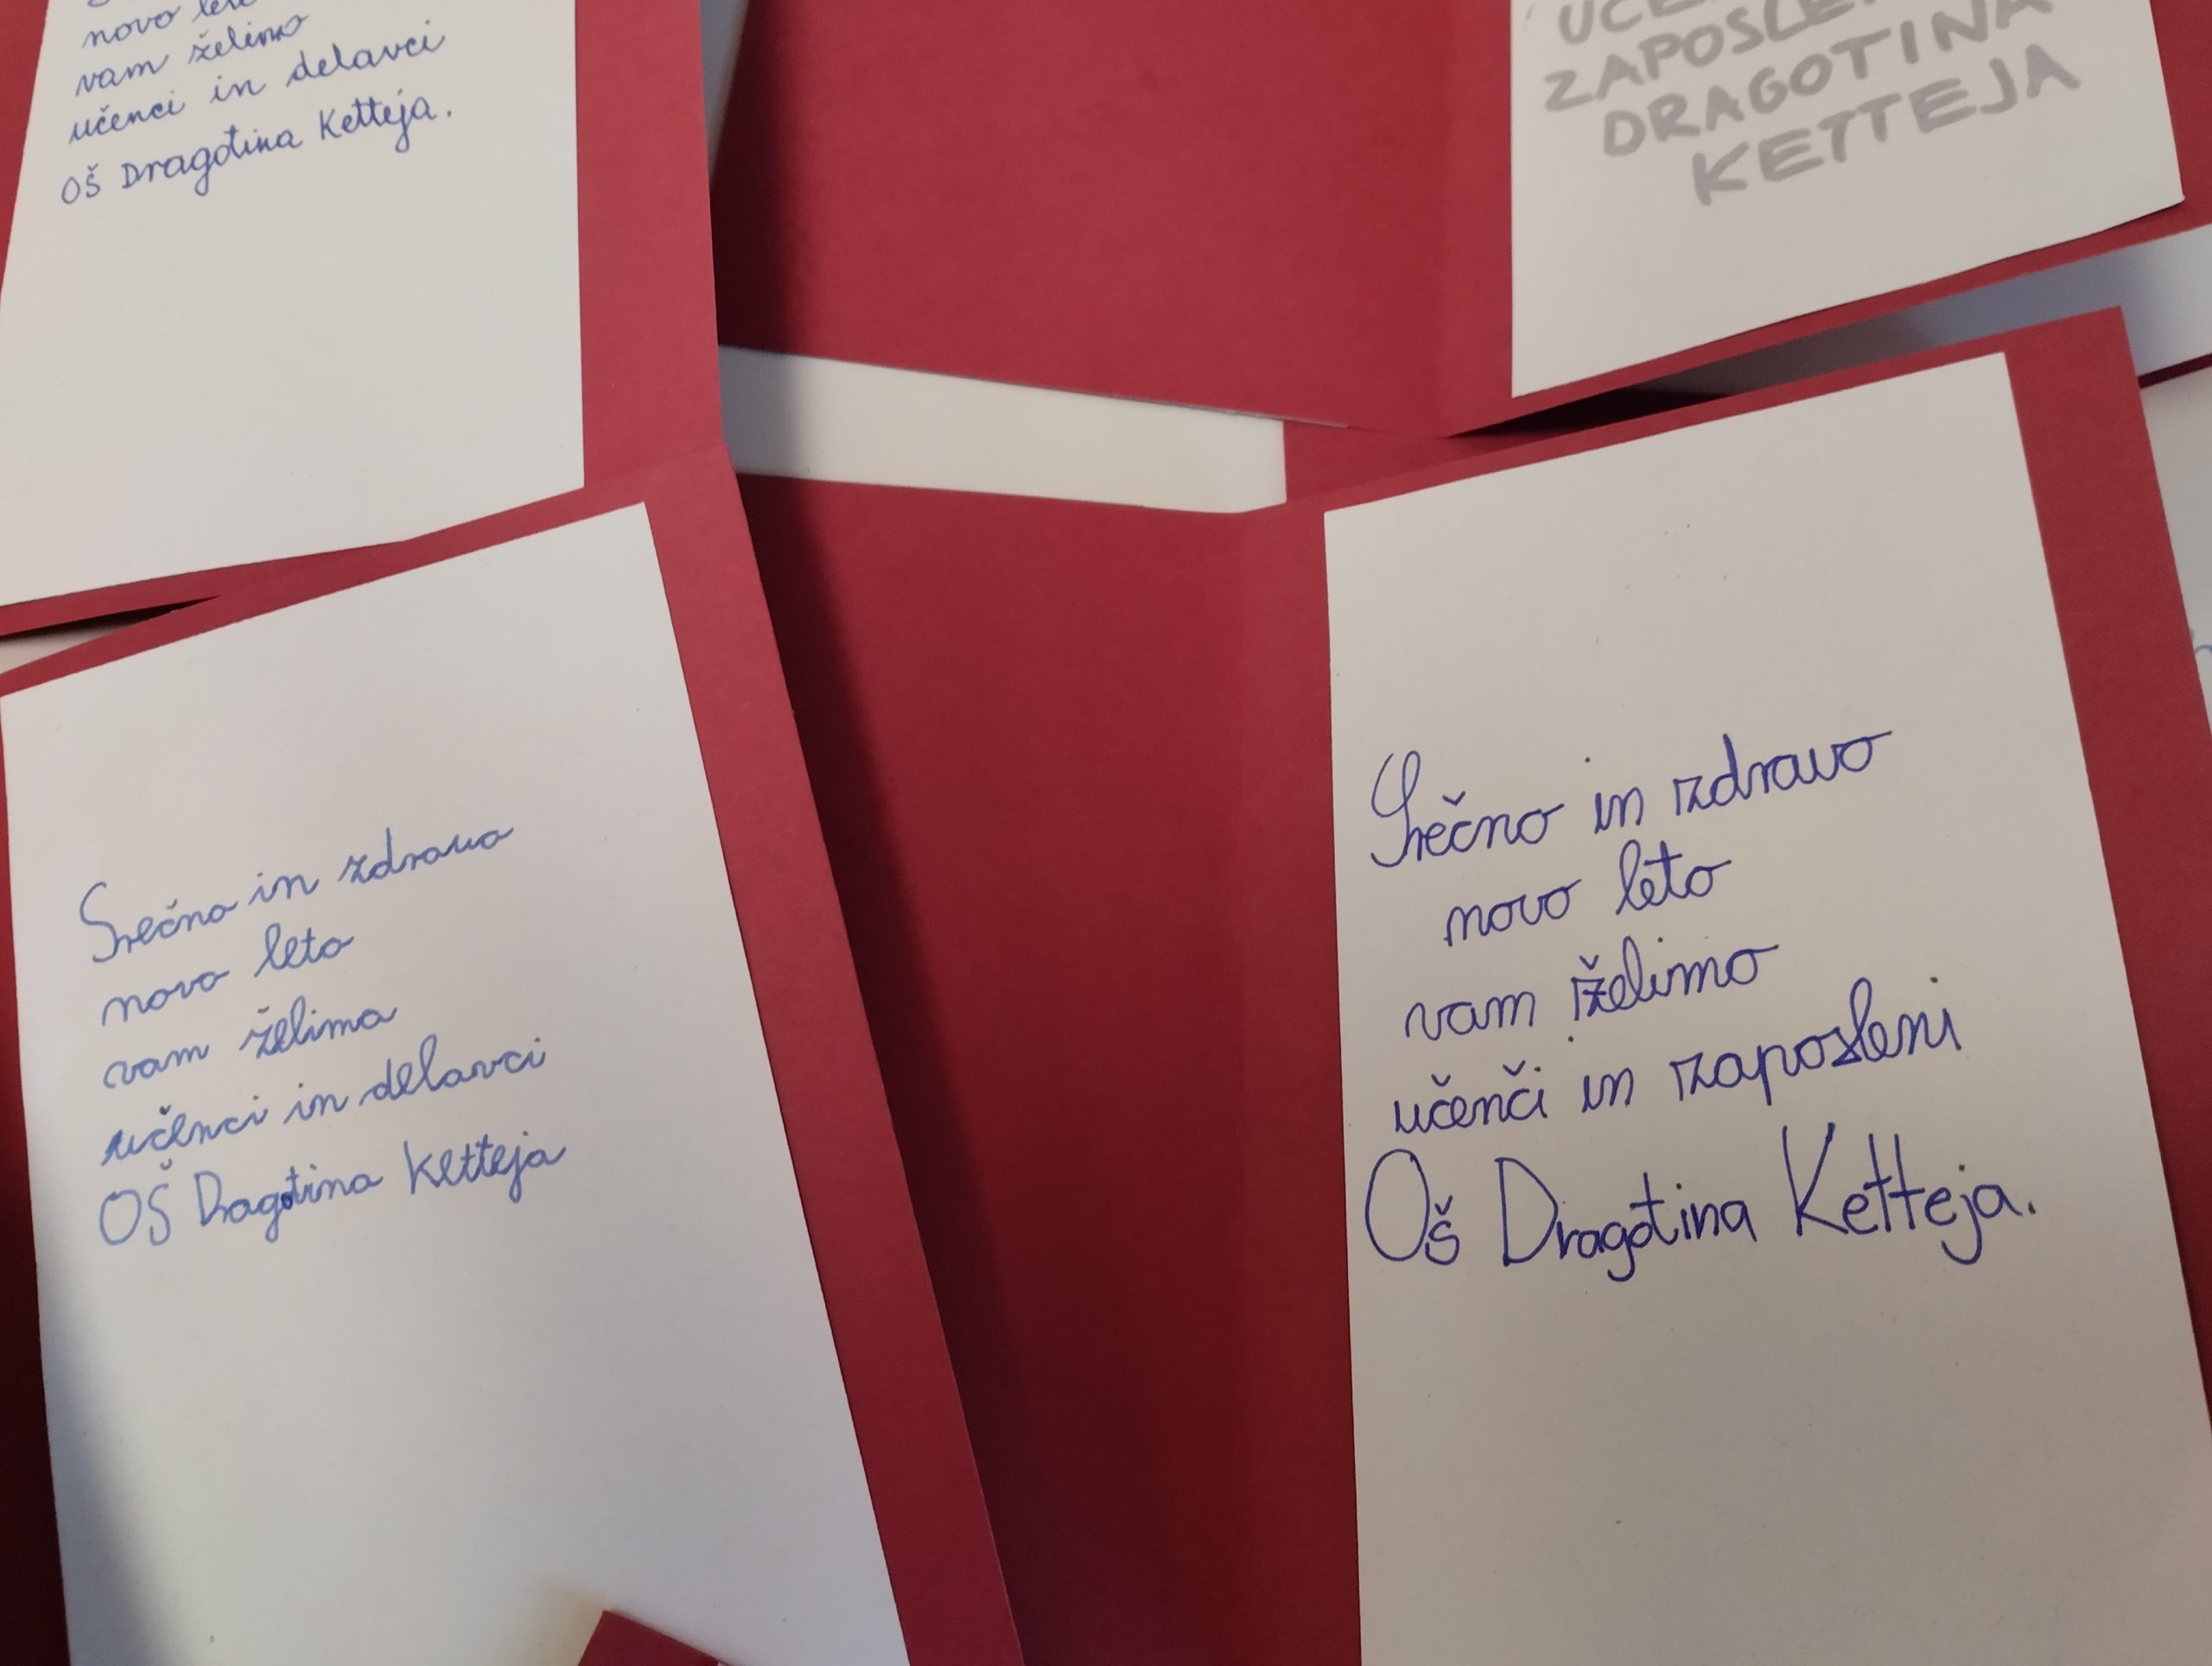 novo leto
vam želimo
učenci in delavci
OŠ Dragotina Ketteja.
ZAPOSLE
DRAGOTINA
KETTEJA
Srečno in zdravo
novo leto
vam želimo
učenci in delavci
OŠ Dragotina Ketteja
Srečno in zdravo
novo leto
vam želimo
učenči in zaposleni
Oš Dragotina Ketteja.